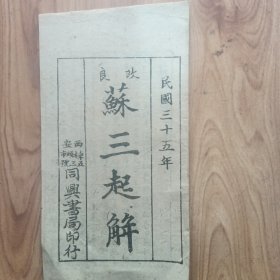 民國三十五年
改良
蘇三起解
西安市
同興書局印行